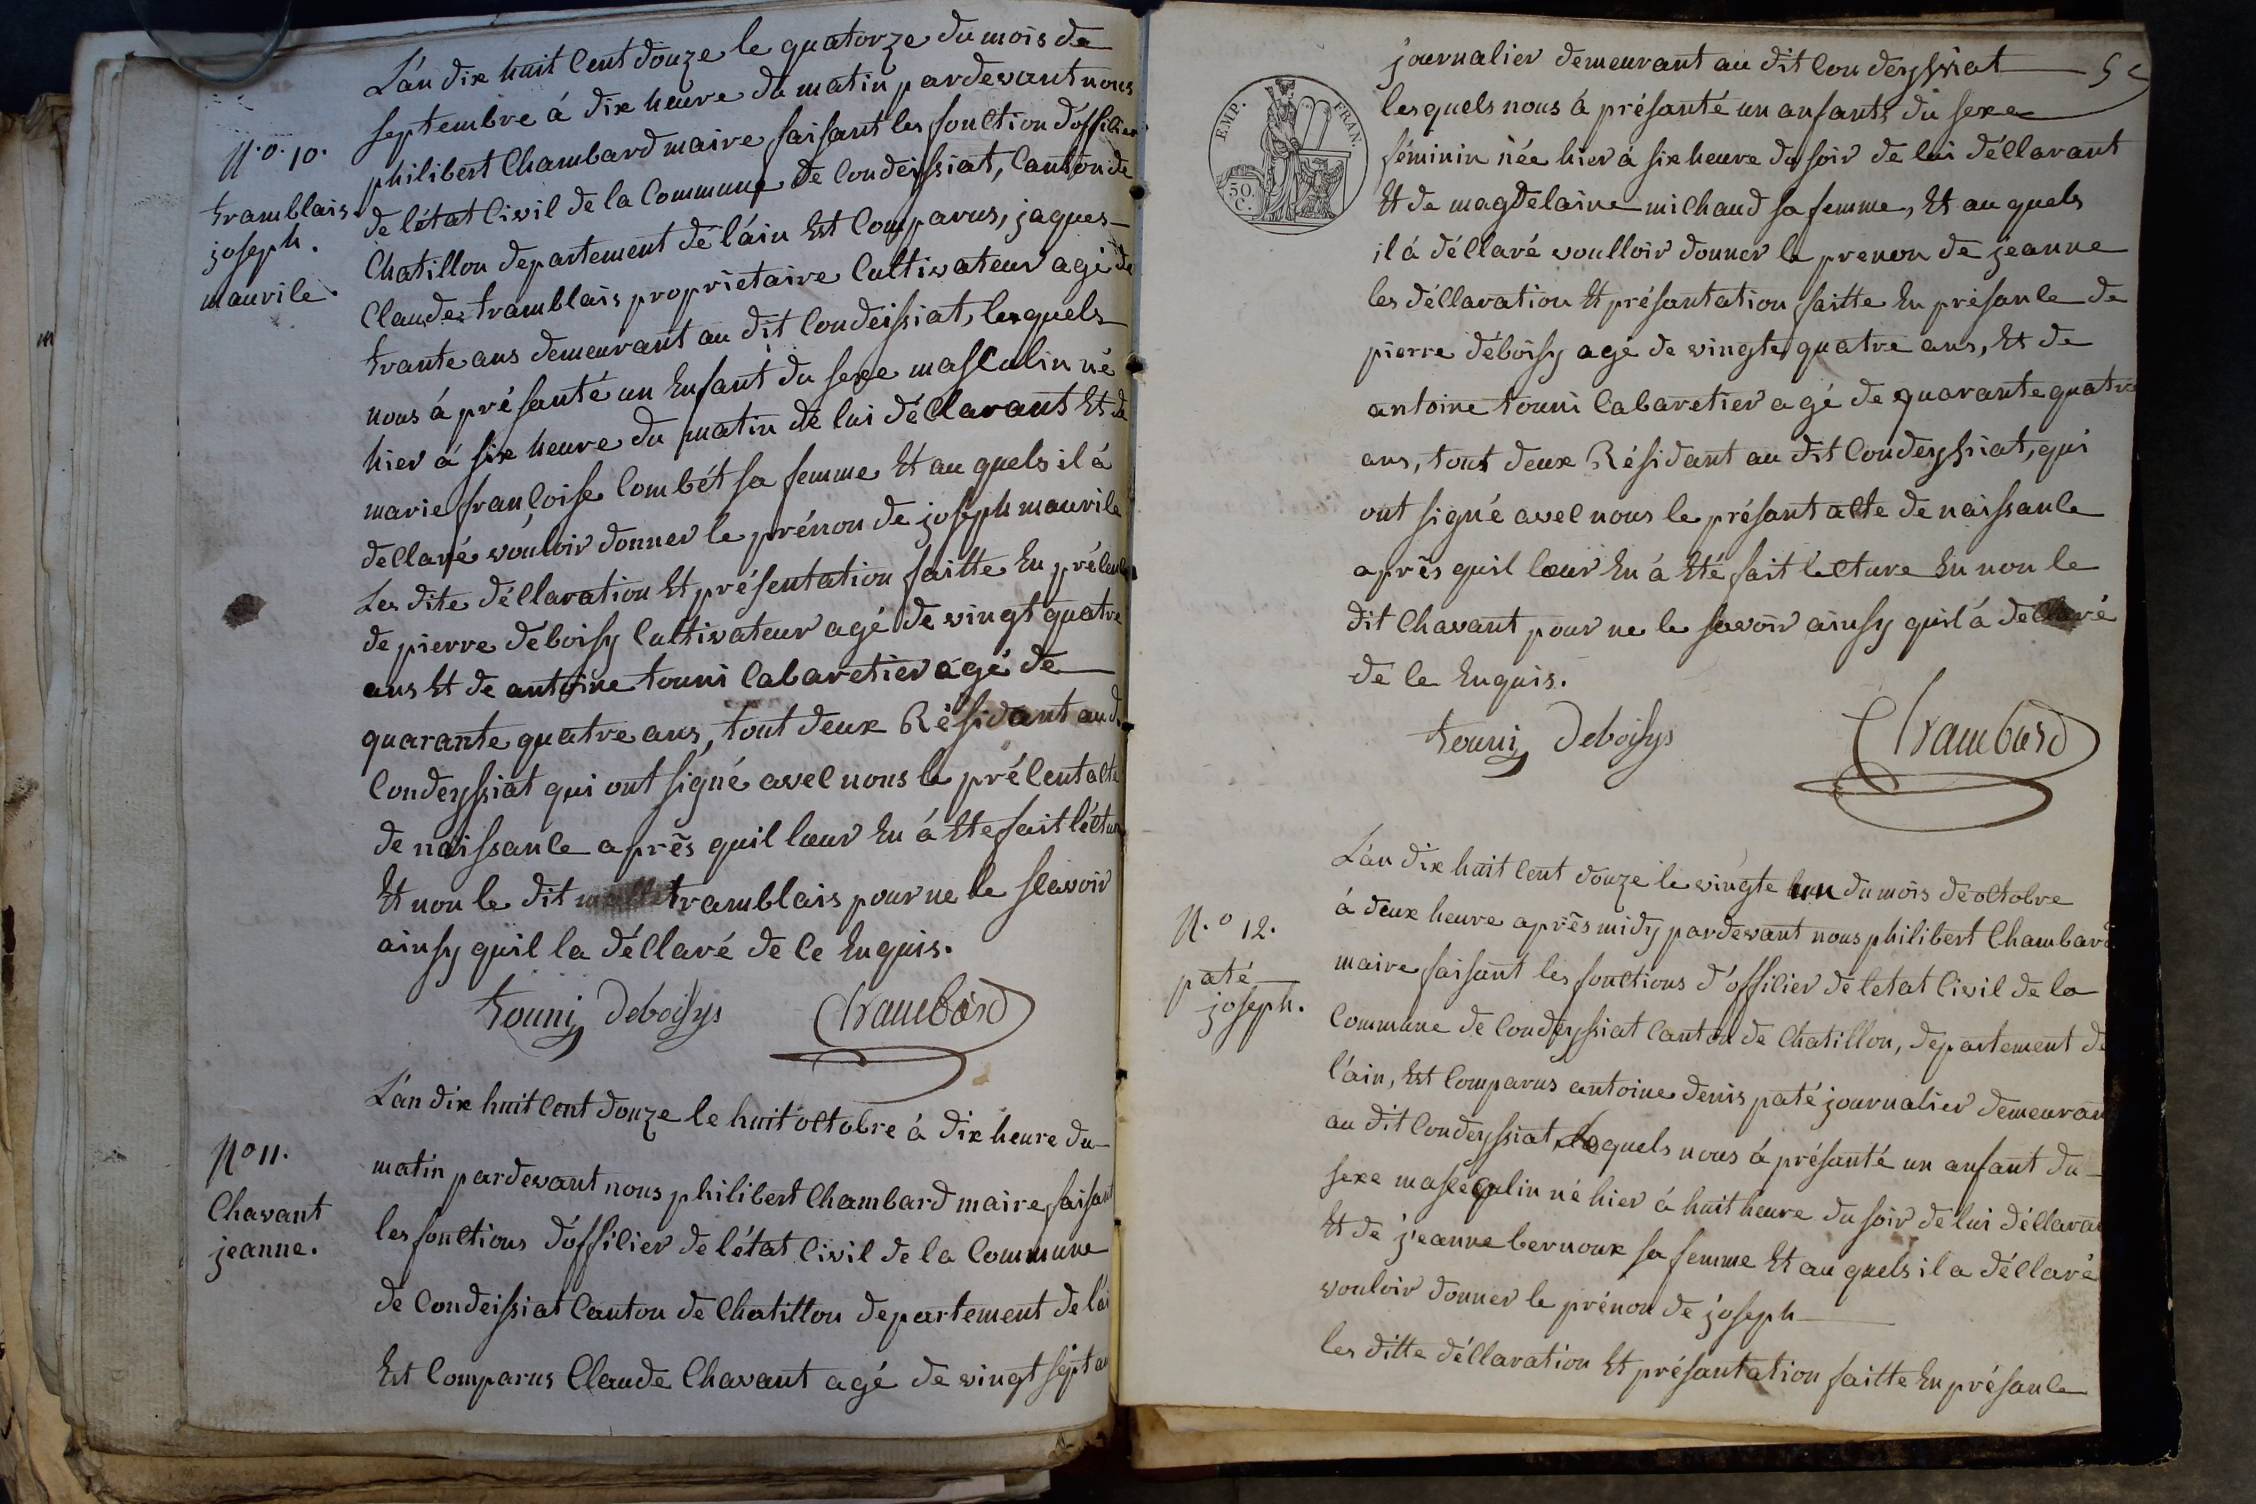 N.o. 10.
tramblais
joseph.
maurile.
L'an dix huit Cent douze le quatorze du mois de
Septembre á dix heure du matin pardevant nous
philibert Chambard maire faisant les fonction d'offilier
de l'état Civil de la Commune de Condeissiat, Canton de
Chatillon departement de l'ain Est Comparus, jaques
Claude tramblais proprietaire Cultivateur agé de
trante ans demeurant au dit Condeissiat, lesquels
nous á présanté un Enfant du sexe masculin né
hier á six heure du matin de lui déClarant Et de
marie françoise Combét sa femme Et au quels il á
déClaré vouloir donner le prénon de joseph maurile
Les dite déClaration Et présentation faitte En présence
de pierre déboisy Cultivateur agé de vingt quatre
ans Et de antoine touni Cabaretier agé de
quarante quatre ans, tout deux Résidant au dit
Condeyssiat qui ont signé avec nous le présent acte
de naissance aprés quil lœur En á Eté fait lécture
Et non le dit tramblais pour ne le scavoir
ainsy quil la déClaré de Ce Enquis.
touni deboisys Chambard
No 11.
Chavant
jeanne.
L'an dix huit Cent douze le huit octobre á dix heure du
matin pardevant nous philibert Chambard maire faisant
les fonctions d'offilier de l'état Civil de la Commune
de Condeissiat Canton de Chatillon departement de l'ai
Est Comparus Claude Chavant agé de vingt sept an
journalier demeurant au dit Condeyssiat
EMP. FRAN.
50 C.
lesquels nous á présanté un anfants du sexe
féminin née hier á six heure du soir de lui déClarant
Et de magdelaine michaud sa femme, Et au quels
il á déClaré voulloir donner le prenon de jeanne
les déClaration Et présantation faitte En présance de
pierre déboisy agé de vingte quatre ans, Et de
antoine touni Cabaretier agé de quarante quatre
ans, tout deux Résidant au dit Condeyssiat, qui
ont signé avec nous le présant acte de naissance
aprés quil lœur En á Eté fait lecture En non le
dit Chavant pour ne le savoir ainsy quil á déClaré
de Ce Enquis.
touni deboisys Chambard
N.o 12.
paté
joseph.
L'an dix huit Cent douze le vingte hun du mois de octobre
á deux heure aprés midy pardevant nous philibert Chambard
maire faisant les fonctions d'offilier de letat Civil de la
Commune de Condeyssiat Canton de Chatillon, departement de
l'ain, Est Comparus antoine denis paté journalier demeuran
au dit Condeyssiat lesquels nous á présanté un anfant du
sexe masculin né hier á huit heure du soir de lui déClaran
Et de jeanne bernoux sa femme Et au quels il a déClaré
vouloir donner le prénon de joseph
les ditte déClaration Et présantation faitte En présance